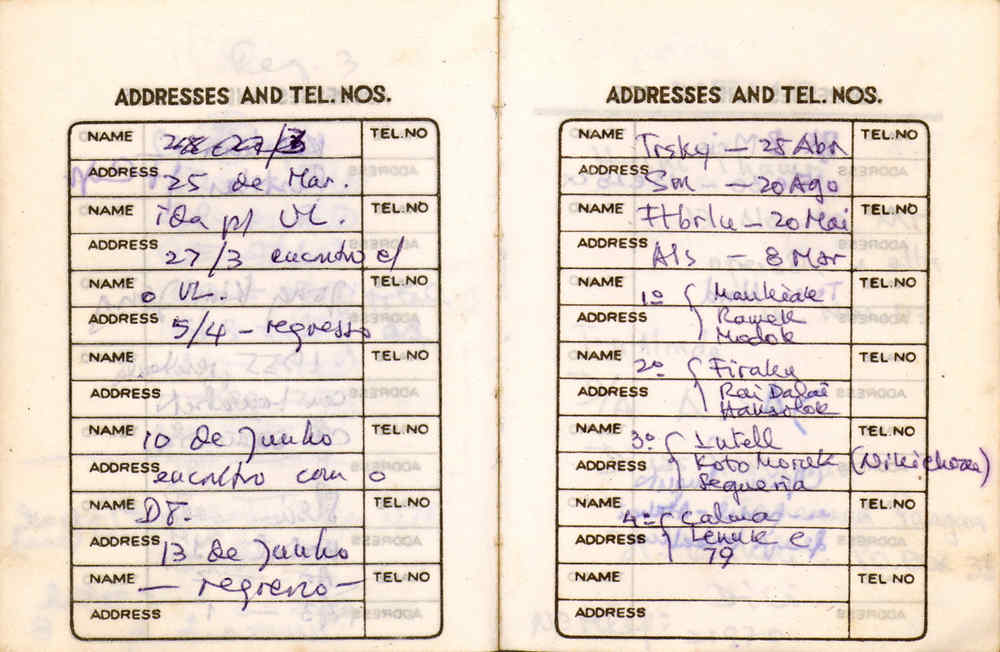 ADDRESSES AND TEL. NOS.
NAME TEL.NO
25 de Mar.
ADDRESS
NAME ida p/ VL. TEL.NO
ADDRESS 27/3 encntro c/
NAME o VL. TEL.NO
ADDRESS 5/4 - regresso
NAME TEL.NO
ADDRESS
NAME 10 de Junho TEL.NO
ADDRESS encntro com o
NAME DT. TEL.NO
ADDRESS 13 de Junho
NAME - regresso - TEL.NO
ADDRESS
ADDRESSES AND TEL. NOS.
NAME - 25 Abr TEL.NO
ADDRESS Sm - 20 Ago
NAME - 20 Mai TEL.NO
ADDRESS Als - 8 Mar
NAME 1º { Maukiak TEL.NO
ADDRESS Ramek
Modok
NAME 2º { Firaku TEL.NO
ADDRESS Rai Dalai
NAME 3º { Lutell TEL.NO
ADDRESS Koto Morak
Segueria
NAME 4º { Calma TEL.NO
ADDRESS Lenuk e
79
NAME TEL NO
ADDRESS